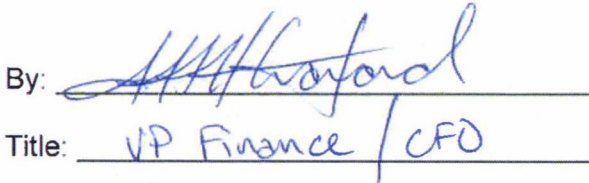 By:
Title: VP Finance / CFO